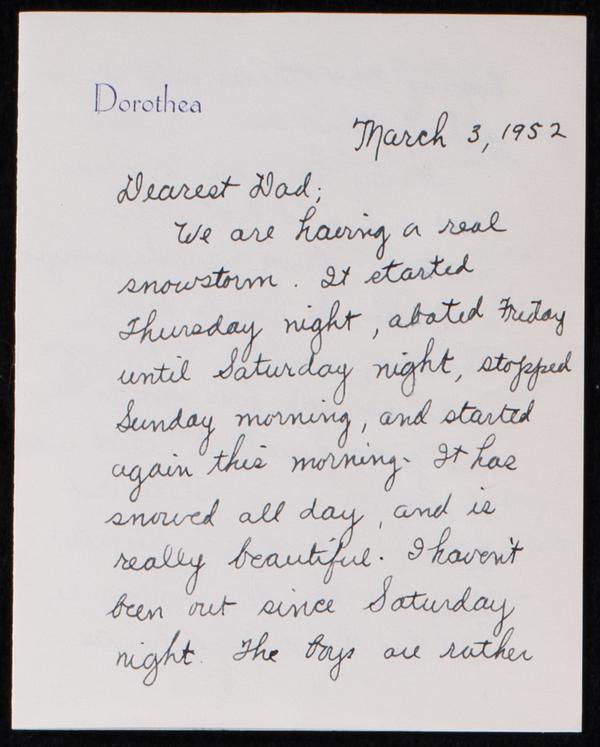 Dorothea
March 3, 1952
Dearest Dad;
We are having a real
snowstorm. It started
Thursday night, abated Friday
until Saturday night, stopped
Sunday morning, and started
again this morning. It has
snowed all day, and is
really beautiful. I haven't
been out since Saturday
night. The boys are rather